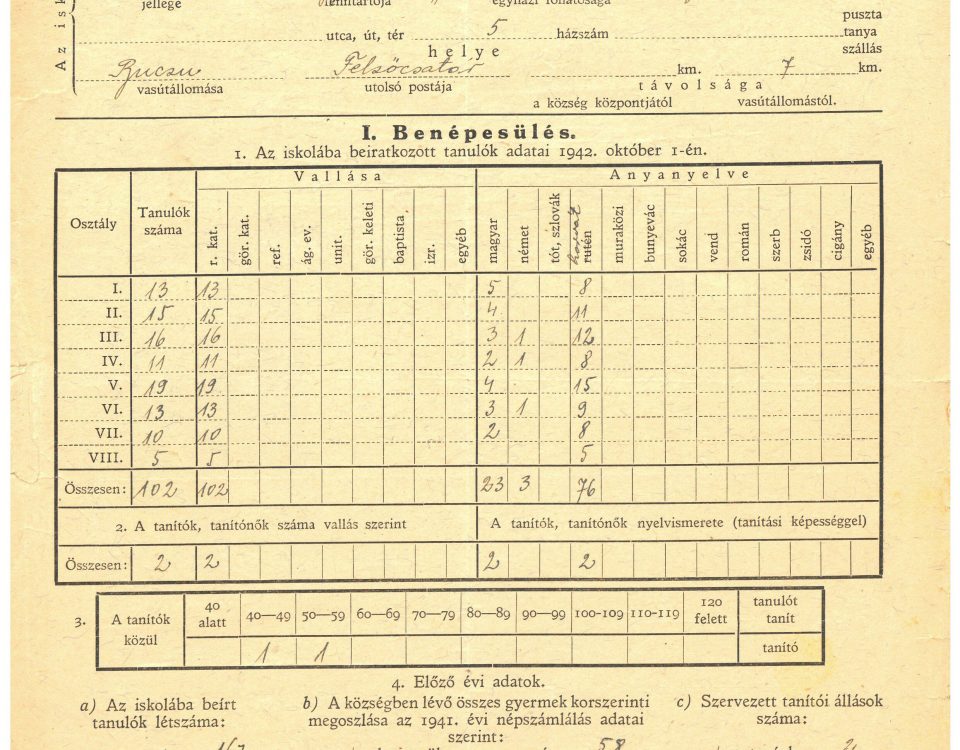 jellege fenntartója egyházi főhatósága
Az isk
utca, út, tér 5 házszám puszta
tanya
szállás
helye
Bucsu Felsőcsatár km. 7 km.
vasútállomása utolsó postája távolsága
a község központjától vasútállomástól.
I. Benépesülés.
1. Az iskolába beiratkozott tanulók adatai 1942. október 1-én.
Osztály Tanulók száma Vallása Anyanyelve
r. kat. gör. kat. ref. ág. ev. unit. gör. keleti baptista izr. egyéb magyar német tót, szlovák horvát rutén muraközi bunyevác sokác vend román szerb zsidó cigány egyéb
I. 13 13 5 8
II. 15 15 4 11
III. 16 16 3 1 12
IV. 11 11 2 1 8
V. 19 19 4 15
VI. 13 13 3 1 9
VII. 10 10 2 8
VIII. 5 5 5
Összesen: 102 102 23 3 76
2. A tanítók, tanítónők száma vallás szerint A tanítók, tanítónők nyelvismerete (tanítási képességgel)
Összesen: 2 2 2 2
3. A tanítók közül 40 alatt 40—49 50—59 60—69 70—79 80—89 90—99 100-109 110-119 120 felett tanulót tanít
1 1 tanító
4. Előző évi adatok.
a) Az iskolába beírt tanulók létszáma:
b) A községben lévő összes gyermek korszerinti megoszlása az 1941. évi népszámlálás adatai szerint:
c) Szervezett tanítói állások száma:
58